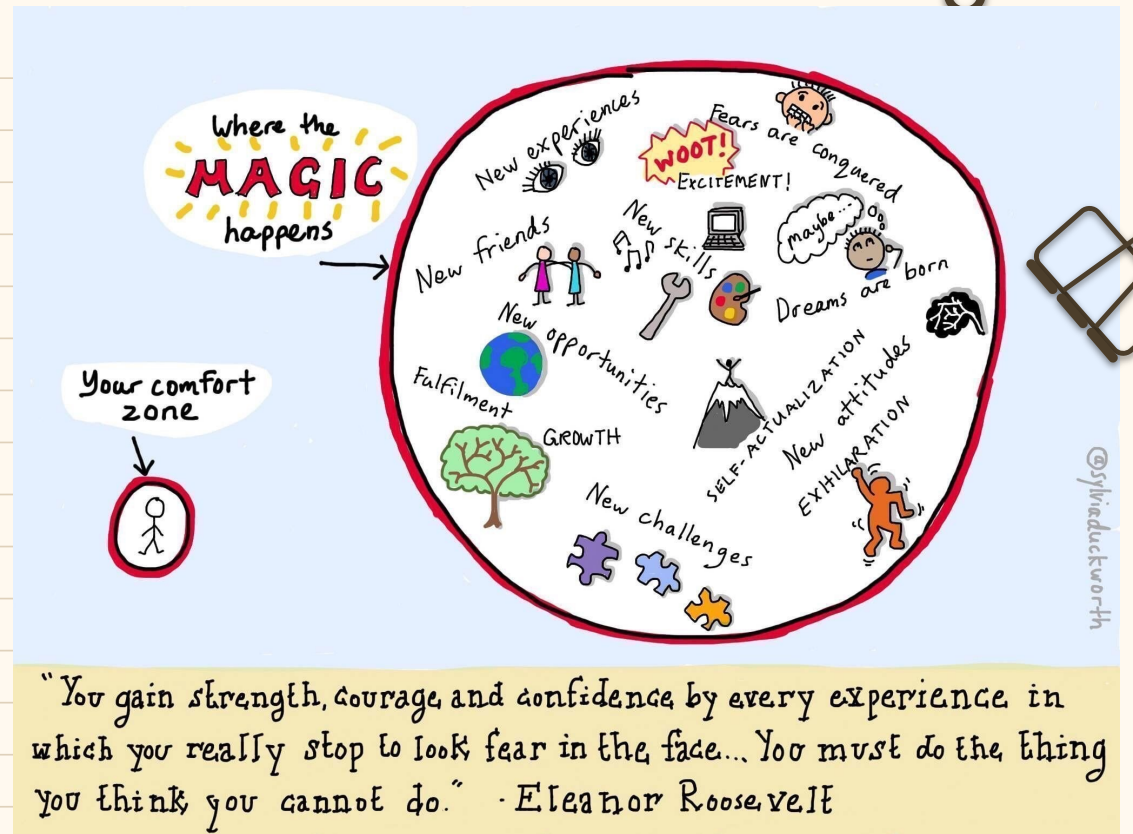 Where the
MAGIC
happens
Your comfort
zone
New experiences
WOOT!
EXCITEMENT!
Fears are conquered
New friends
New skills
maybe...
Dreams are born
New opportunities
Fulfilment
GROWTH
SELF-ACTUALIZATION
New attitudes
EXHILARATION
New challenges
@sylviaduckworth
"You gain strength, courage and confidence by every experience in
which you really stop to look fear in the face... You must do the thing
you think you cannot do." - Eleanor Roosevelt